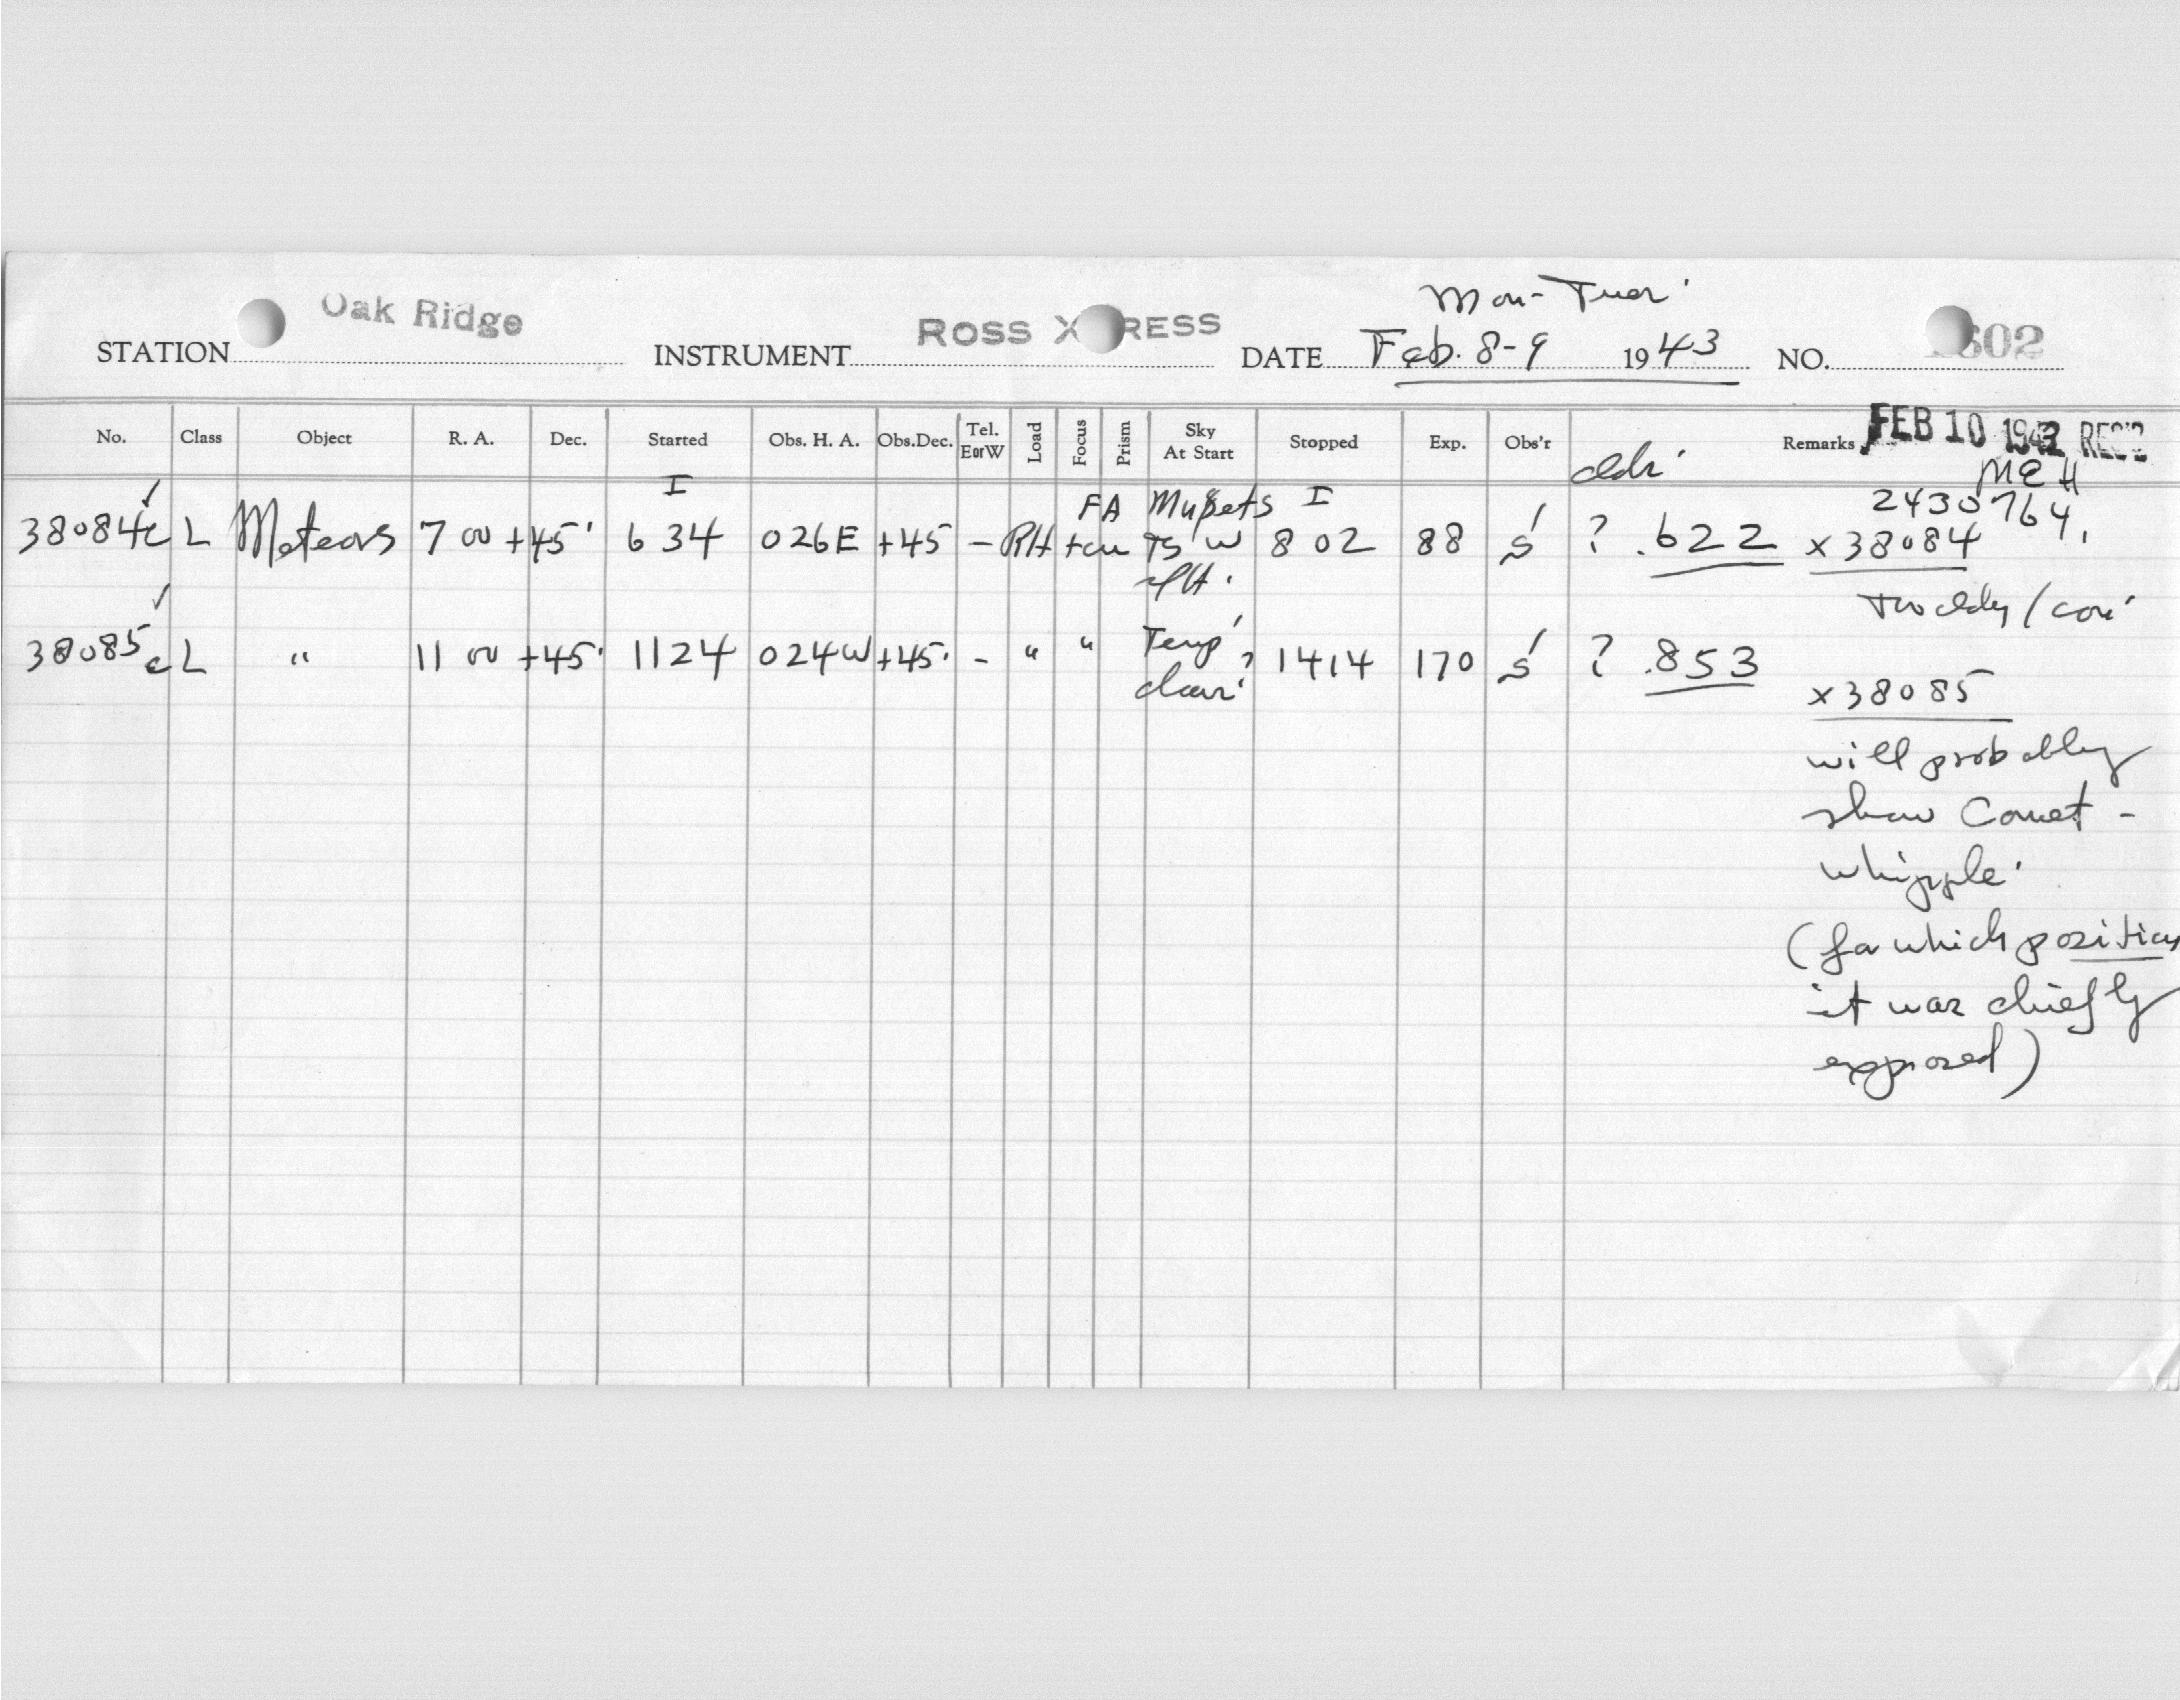 Mon-Tues.
STATION Oak Ridge INSTRUMENT ROSS X RESS DATE Feb. 8-9 1943 NO. 602
No. Class Object R. A. Dec. Started Obs. H. A. Obs.Dec. Tel. EorW Load Focus Prism Sky At Start Stopped Exp. Obs'r Remarks FEB 10 1943 REC'D
MEH
I FA I 2430764.
38084c L Meteors 7 00 +45 6 34 026E +45 - RH W 8 02 88 S ? .622 x38084
38085c L " 11 00 +45 1124 024W +45 - " " Temp. clear 1414 170 S ? .853
x38085
will probably
show Comet -
Whipple.
(for which position
it was chiefly
exposed)